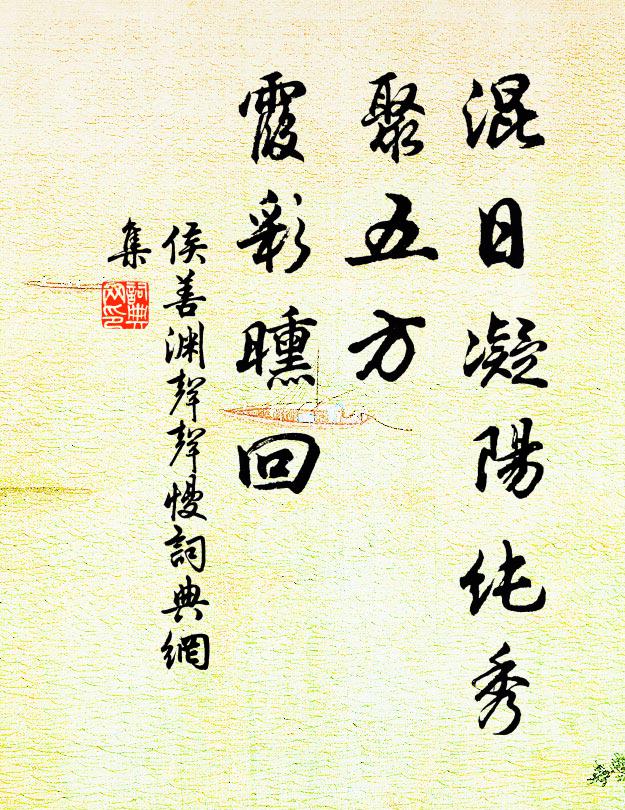 混日凝陽纯秀
聚五方
霞彩曛回
侯善渊聲聲慢詞典網
集
詞典
网印